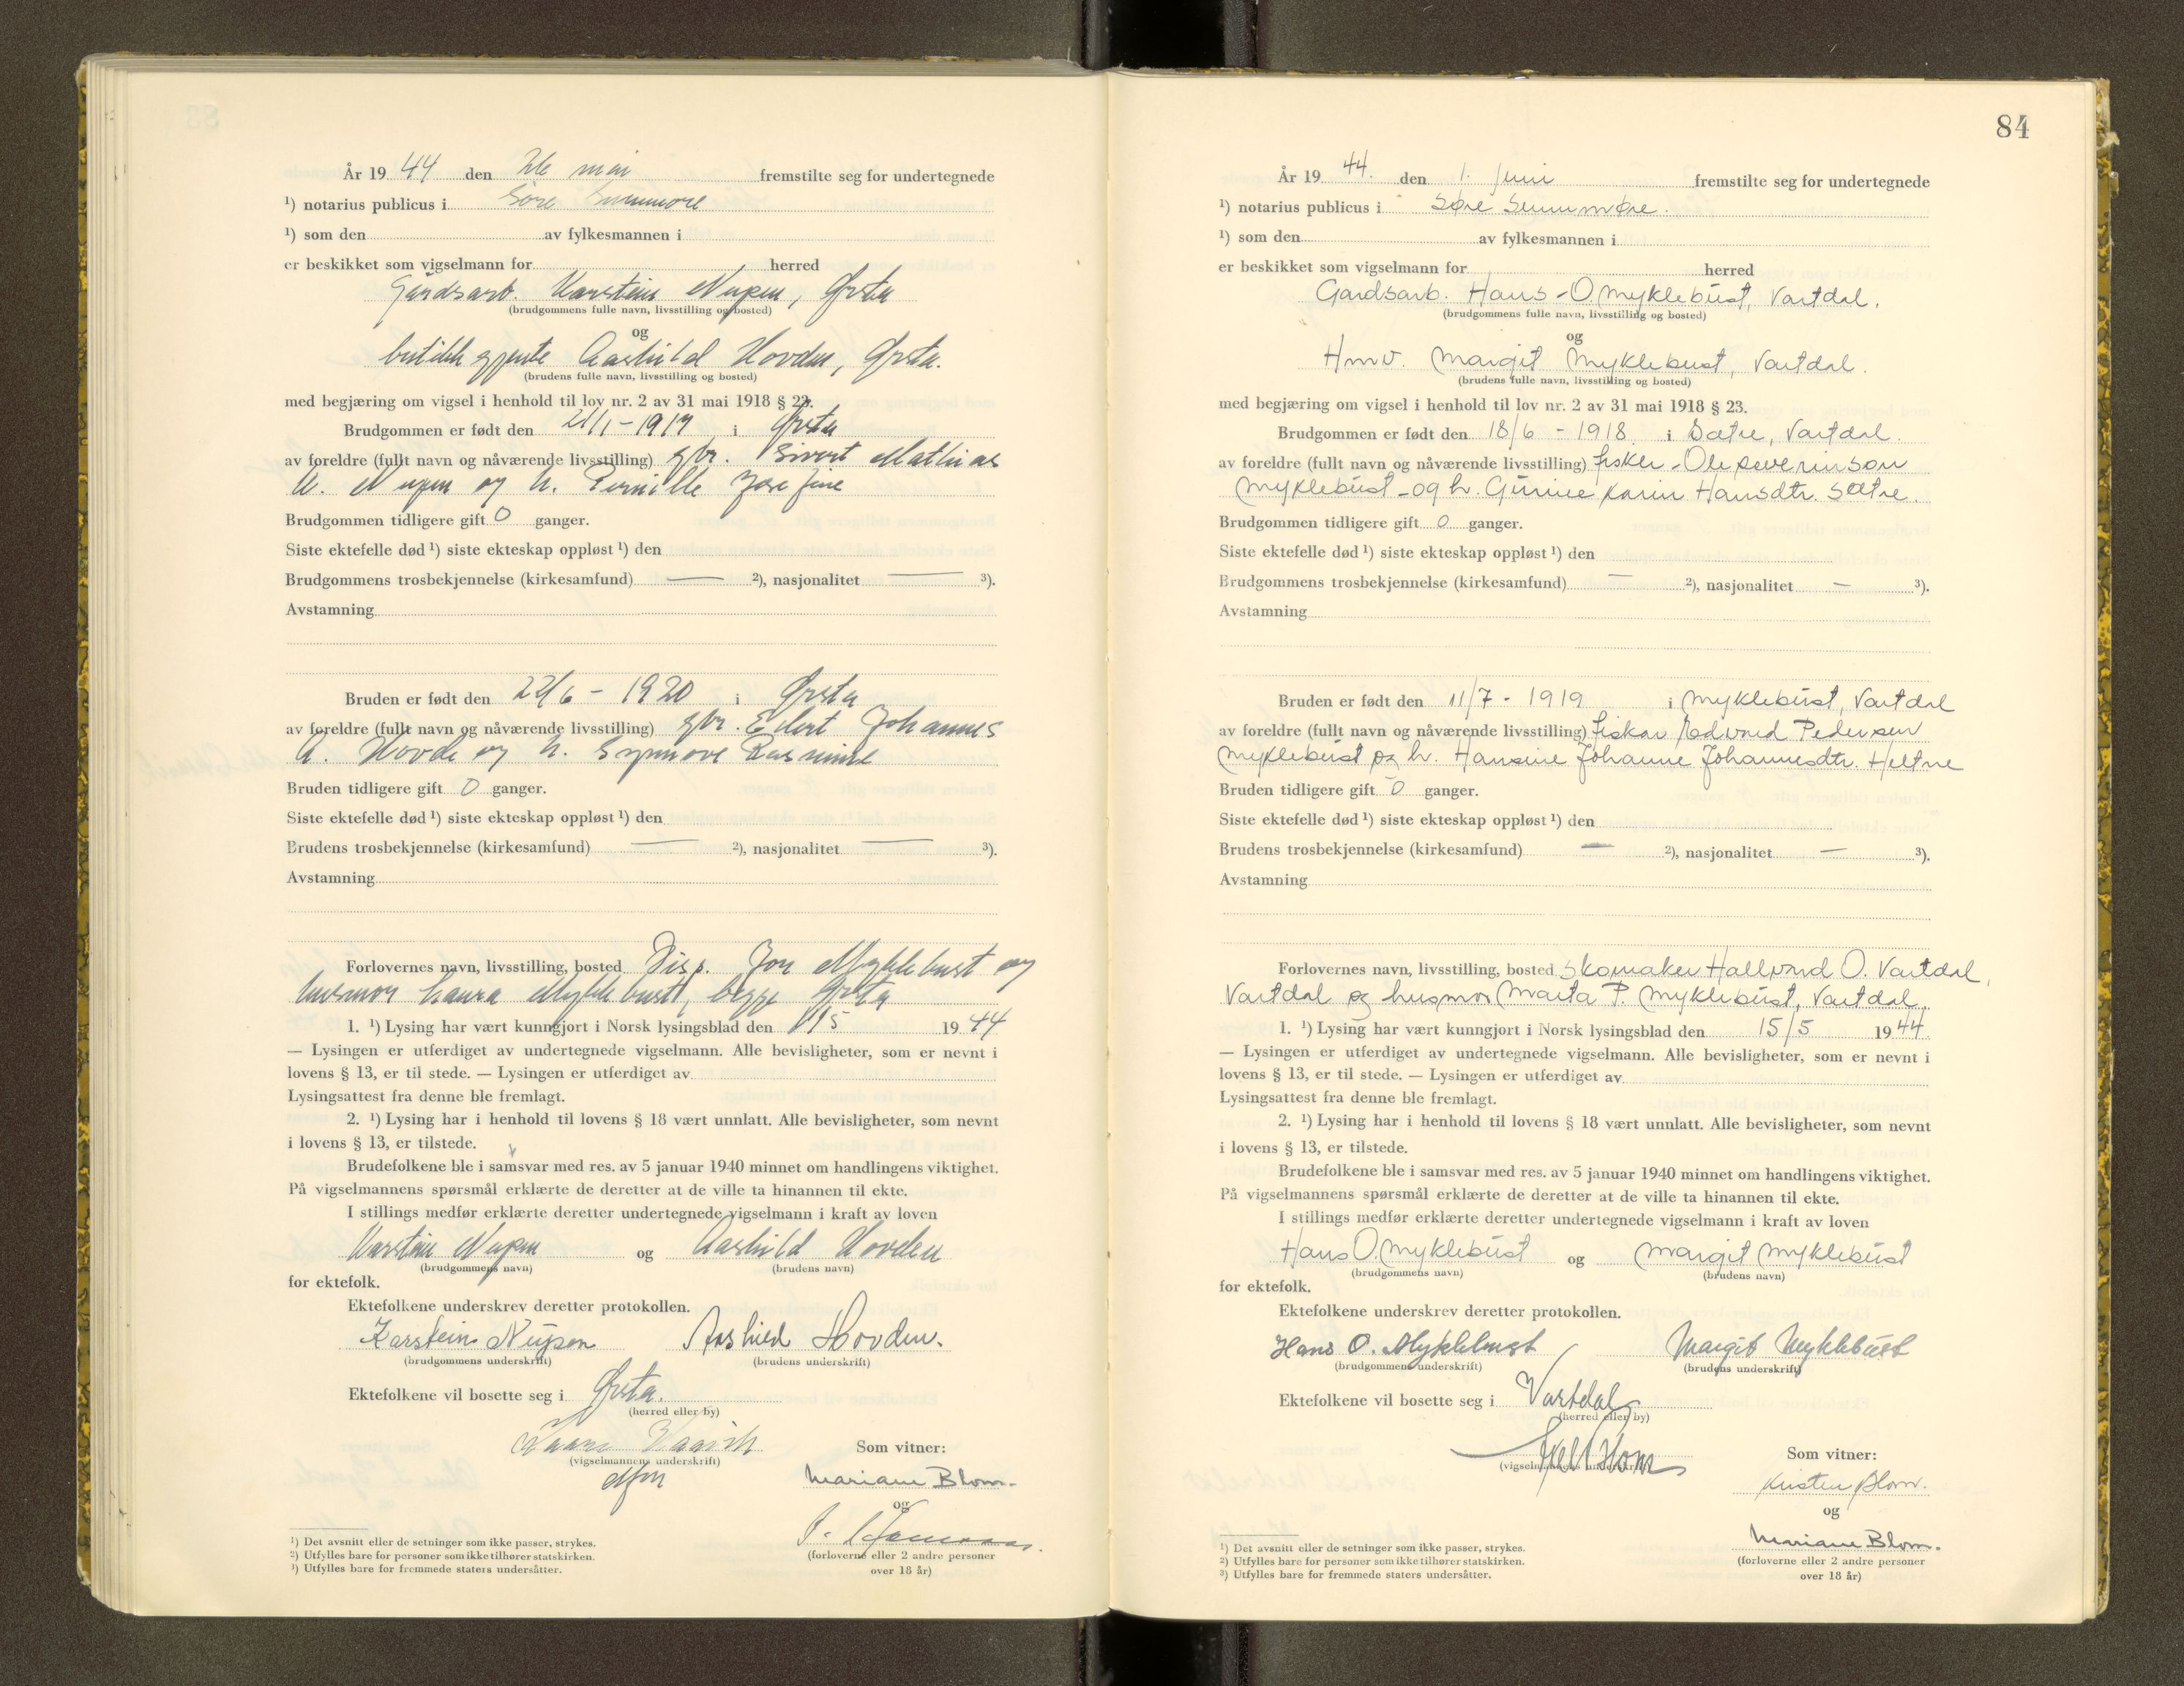 År 19 44 den mai fremstilte seg for undertegnede
¹) notarius publicus i Søre Sunnmøre
¹) som den av fylkesmannen i
er beskikket som vigselmann for herred
Gårdsarb. Karstein Nupen, Ørsta
(brudgommens fulle navn, livsstilling og bosted)
og
butikkgjente Aashild Hovden, Ørsta.
(brudens fulle navn, livsstilling og bosted)
med begjæring om vigsel i henhold til lov nr. 2 av 31 mai 1918 § 23.
Brudgommen er født den i Ørsta
av foreldre (fullt navn og nåværende livsstilling) gbr. Sivert Mathias
A. Nupen og h. Pernille Josefine
Brudgommen tidligere gift 0 ganger.
Siste ektefelle død ¹) siste ekteskap oppløst ¹) den
Brudgommens trosbekjennelse (kirkesamfund) — ²), nasjonalitet — ³).
Avstamning
Bruden er født den 22/6 - 1920 i Ørsta
av foreldre (fullt navn og nåværende livsstilling) gbr. Edert Johannes
A. Hovde og h. Synnøve Rasmine
Bruden tidligere gift 0 ganger.
Siste ektefelle død ¹) siste ekteskap oppløst ¹) den
Brudens trosbekjennelse (kirkesamfund) — ²), nasjonalitet — ³).
Avstamning
Forlovernes navn, livsstilling, bosted Disp. Jon Myklebust og
husmor Laura Myklebust, begge Ørsta
1. ¹) Lysing har vært kunngjort i Norsk lysingsblad den 19 44
— Lysingen er utferdiget av undertegnede vigselmann. Alle bevisligheter, som er nevnt i
lovens § 13, er til stede. — Lysingen er utferdiget av
Lysingsattest fra denne ble fremlagt.
2. ¹) Lysing har i henhold til lovens § 18 vært unnlatt. Alle bevisligheter, som nevnt
i lovens § 13, er tilstede.
Brudefolkene ble i samsvar med res. av 5 januar 1940 minnet om handlingens viktighet.
På vigselmannens spørsmål erklærte de deretter at de ville ta hinannen til ekte.
I stillings medfør erklærte deretter undertegnede vigselmann i kraft av loven
Karstein Nupen og Aashild Hovden
(brudgommens navn) (brudens navn)
for ektefolk.
Ektefolkene underskrev deretter protokollen.
Karstein Nupen Aashild Hovden.
(brudgommens underskrift) (brudens underskrift)
Ektefolkene vil bosette seg i Ørsta.
(herred eller by)
Kaare
(vigselmannens underskrift)
Som vitner:
Mariane Blom.
og
(forloverne eller 2 andre personer
over 18 år)
¹) Det avsnitt eller de setninger som ikke passer, strykes.
²) Utfylles bare for personer som ikke tilhører statskirken.
³) Utfylles bare for fremmede staters undersåtter.
84
År 19 44. den 1. juni fremstilte seg for undertegnede
¹) notarius publicus i Søre Sunnmøre.
¹) som den av fylkesmannen i
er beskikket som vigselmann for herred
Gardsarb. Hans O Myklebust, Vartdal.
(brudgommens fulle navn, livsstilling og bosted)
og
Hmv. Margit Myklebust, Vartdal.
(brudens fulle navn, livsstilling og bosted)
med begjæring om vigsel i henhold til lov nr. 2 av 31 mai 1918 § 23.
Brudgommen er født den 18/6 - 1918 i Sætre, Vartdal.
av foreldre (fullt navn og nåværende livsstilling) fisker Ole Severinson
Myklebust - og h. Gurine Karin Hansdtr. Sætre.
Brudgommen tidligere gift 0 ganger.
Siste ektefelle død ¹) siste ekteskap oppløst ¹) den
Brudgommens trosbekjennelse (kirkesamfund) — ²), nasjonalitet — ³).
Avstamning
Bruden er født den 11/7 - 1919 i Myklebust, Vartdal
av foreldre (fullt navn og nåværende livsstilling) fiskar Edvard Pedersen
Myklebust og h. Hansine Johanne Johannesdtr. Heltne
Bruden tidligere gift 0 ganger.
Siste ektefelle død ¹) siste ekteskap oppløst ¹) den
Brudens trosbekjennelse (kirkesamfund) — ²), nasjonalitet — ³).
Avstamning
Forlovernes navn, livsstilling, bosted Skomaker Hallvard O. Vartdal,
Vartdal og husmor Marta P. Myklebust, Vartdal.
1. ¹) Lysing har vært kunngjort i Norsk lysingsblad den 15/5 19 44.
— Lysingen er utferdiget av undertegnede vigselmann. Alle bevisligheter, som er nevnt i
lovens § 13, er til stede. — Lysingen er utferdiget av
Lysingsattest fra denne ble fremlagt.
2. ¹) Lysing har i henhold til lovens § 18 vært unnlatt. Alle bevisligheter, som nevnt
i lovens § 13, er tilstede.
Brudefolkene ble i samsvar med res. av 5 januar 1940 minnet om handlingens viktighet.
På vigselmannens spørsmål erklærte de deretter at de ville ta hinannen til ekte.
I stillings medfør erklærte deretter undertegnede vigselmann i kraft av loven
Hans O. Myklebust og Margit Myklebust
(brudgommens navn) (brudens navn)
for ektefolk.
Ektefolkene underskrev deretter protokollen.
Hans O. Myklebust Margit Myklebust
(brudgommens underskrift) (brudens underskrift)
Ektefolkene vil bosette seg i Vartdal
(herred eller by)
(vigselmannens underskrift)
Som vitner:
Kirsten Blom.
og
Mariane Blom.
(forloverne eller 2 andre personer
over 18 år)
¹) Det avsnitt eller de setninger som ikke passer, strykes.
²) Utfylles bare for personer som ikke tilhører statskirken.
³) Utfylles bare for fremmede staters undersåtter.